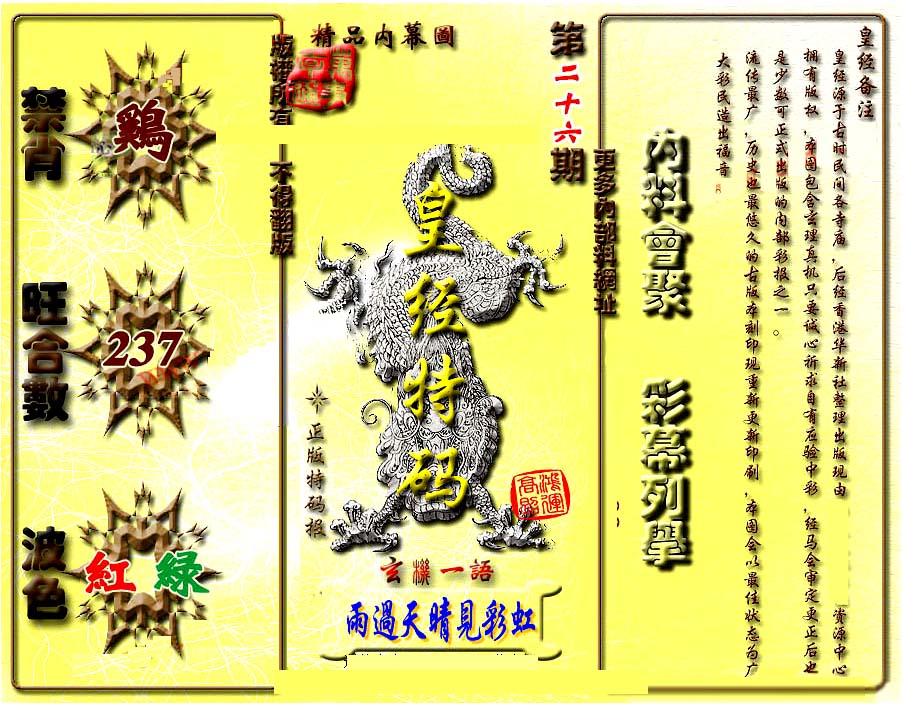 皇经备注
皇经源于古时民间各寺庙,后经香港华新社整理出版现由 资源中心
拥有版权,本图包含玄理真机只要诚心祈求自有应验中彩,经马会审定更正后也
是少数可正式出版的内部彩报之一。
流传最广,历史也最悠久的古版本刻印现重新更新印刷,本图会以最佳状态为广
大彩民造出福音
内料會聚 彩幕列舉
更多内部料網址
第二十六期
精品内幕圖
版權所有 不得翻版
皇经特码
正版特码报
鴻運高照
玄機一語
雨過天晴見彩虹
禁肖
鷄
旺合數
237
波色
紅 綠